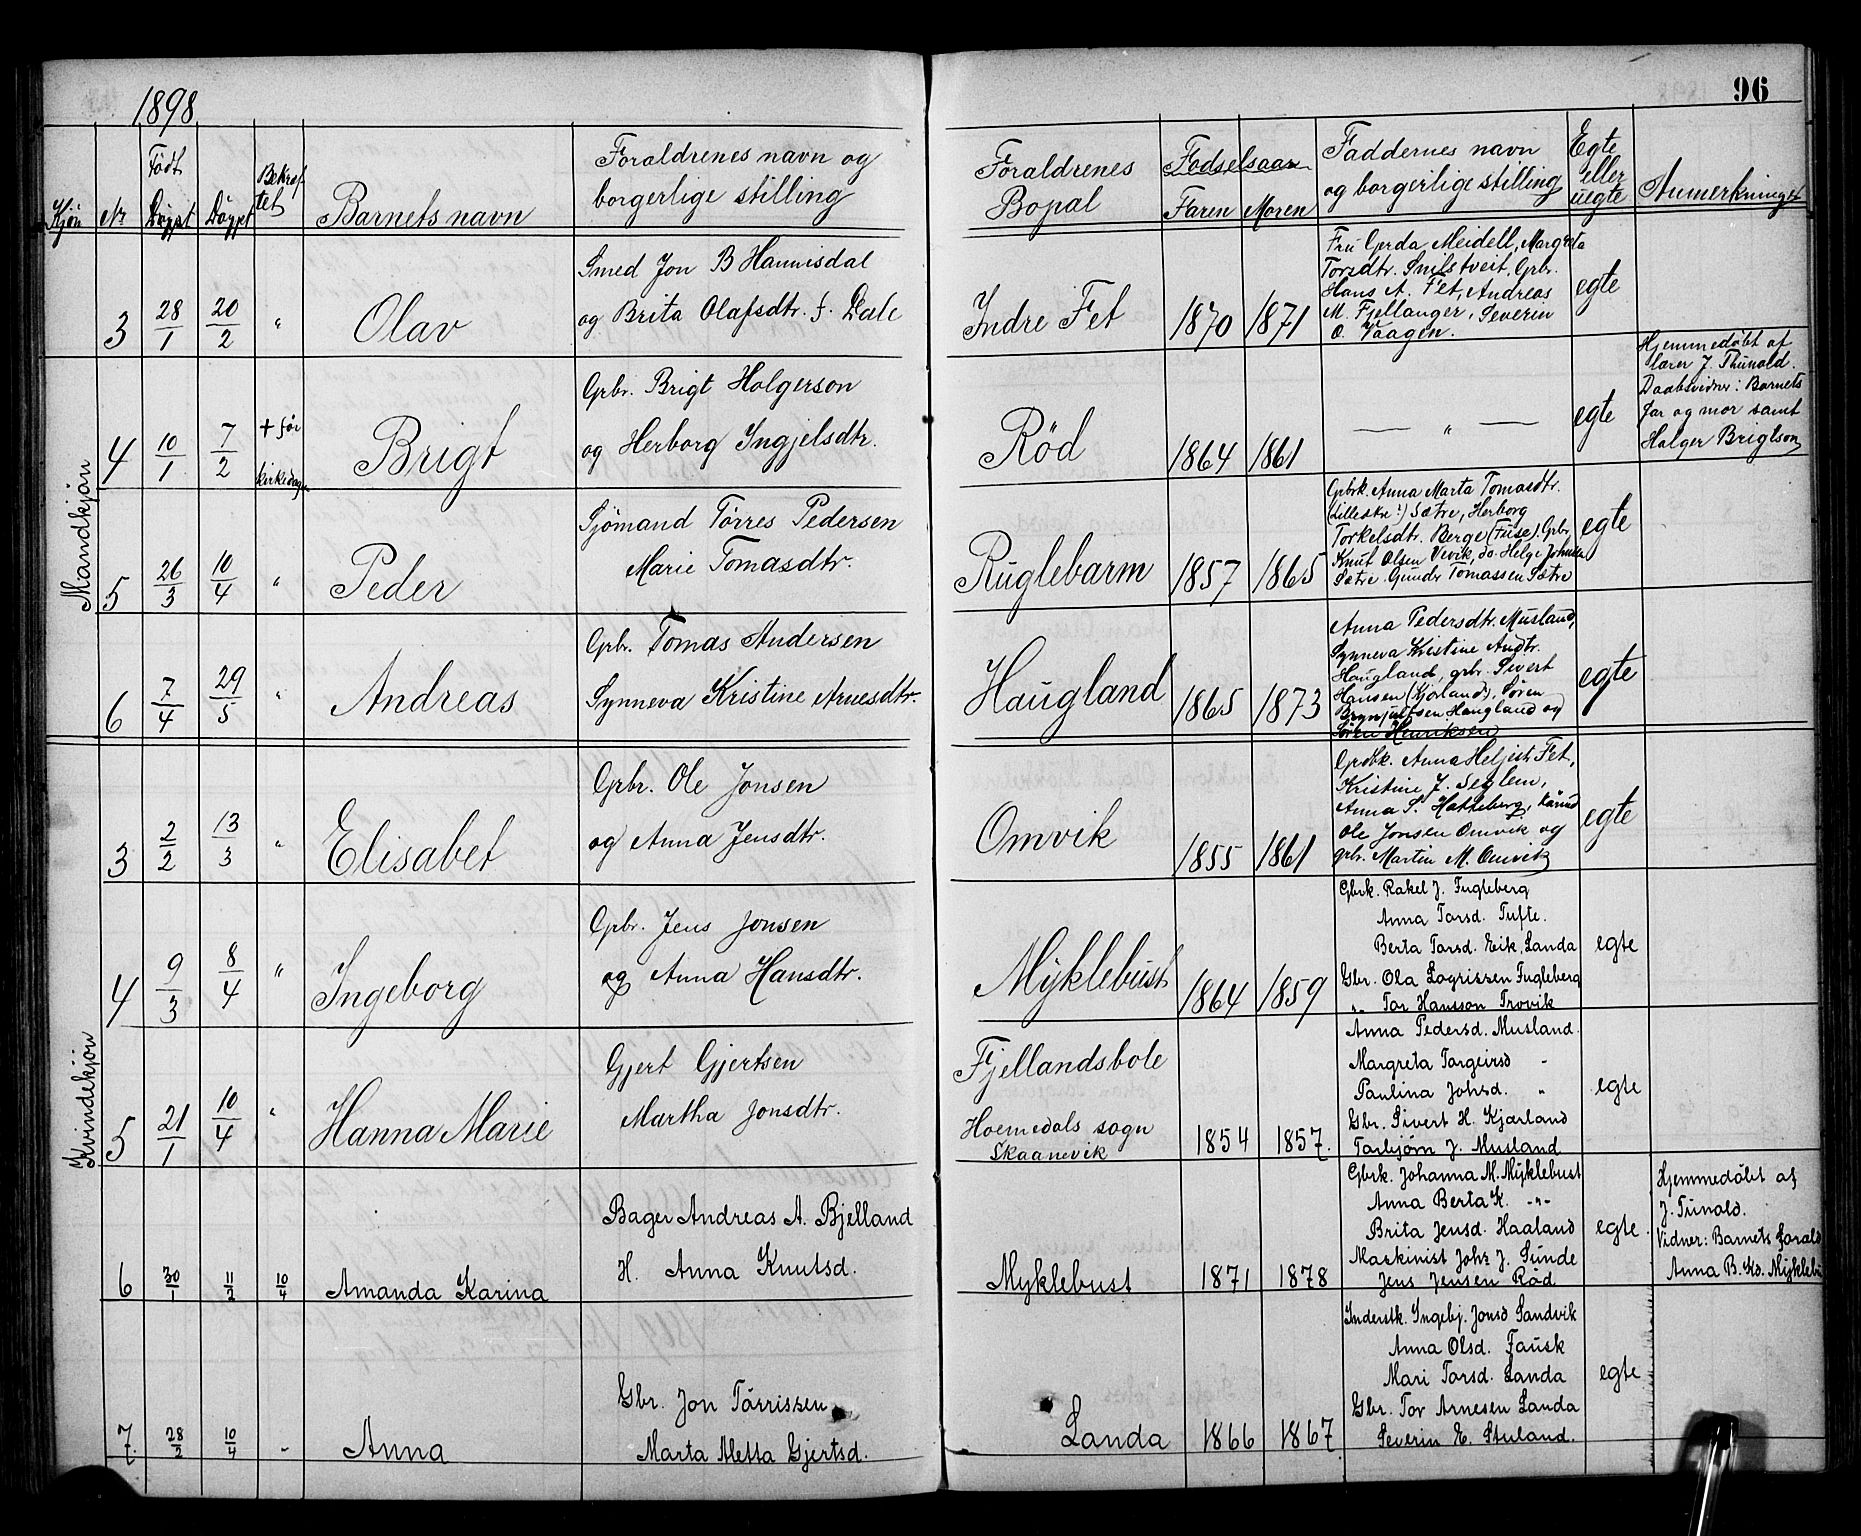 1898
96
Kjön
Nr
Födt
Döbt
Döpt
Bekræf-
tet
Barnets navn
Foraldrenes navn og
borgerlige stilling
Foraldrenes
Bopal
Fodselsaar
Faren Moren
Faddernes navn
og borgerlige stilling
Egte
eller
uegte
Anmerkninger
Mandkjön
3 28/1 20/2 "
Olav
Smed Jon B Hannisdal
og Brita Olafsdtr. f. Dale
Indre Fet
1870 1871
Fru Gerda Meidell, Margreta
Torsdtr. Snilstveit, Gbr.
Hans A. Fet, Andreas
M. Fjellanger, Severin
O. Vaagen.
egte
4 10/1 7/2 + før
kirkedagen
Brigt
Gbr. Brigt Holgerson
og Herborg Ingjelsdtr.
Röd
1864 1861
— " —
egte
Hjemmedöbt af
lærer J. Thunold.
Daabsvidner: Barnets
far og mor samt
Holger Brigtson
5 26/3 10/4 "
Peder
Sjömand Törres Pedersen
Marie Tomasdtr.
Ruglebarm
1857 1865
Gbrk. Anna Marta Tomasdtr.
Sætre, Herborg
Torkelsdtr. Berge (Fuse). Gbr.
Knut Olsen Vevik, do. Helge Johnsen
Sætre. Gunder Tomassen Sætre
egte
6 7/4 29/5 "
Andreas
Gbr. Tomas Andersen
Synneva Kristine Arnesdtr.
Haugland
1865 1873
Anna Pedersdtr. Musland,
Synneva Kristine Andtr.
Haugland, gbr. Sivert
Hansen (Kjærland), Sören
Brynjulfsen Haugland og
Sören Henriksen
egte
Kvindekjön
3 2/2 13/3 "
Elisabet
Gbr. Ole Jonsen
og Anna Jensdtr.
Omvik
1855 1861
Grdbk. Anna Heljesd. Fet,
Kristine J. Seglem,
Anna S. Hatteberg,
Ole Jonsen Omvik og
gbr. Martin M. Omvik
egte
4 9/3 8/4 "
Ingeborg
Gbr. Jens Jonsen
og Anna Hansdtr.
Myklebust
1864 1859
Gbrk. Rakel J. Fugleberg
Anna Torsd. Tufte.
Berta Torsd. Eik, Landa
Gbr. Ola Logrissen Fugleberg
" Tor Hansson Trovik
egte
5 21/1 10/4 "
Hanna Marie
Gjert Gjertsen
Martha Jonsdtr.
Fjellandsbole
Hoemedals sogn
Skaanevik
1854 1857.
Anna Pedersd. Musland.
Margreta Torgeirsd "
Paulina Johsd. "
Gbr. Sivert H. Kjærland
Torbjørn J. Musland
egte
6 30/1 11/2 10/4
Amanda Karina
Bager Andreas A. Bjelland
H. Anna Knutsd.
Myklebust
1871 1878
Gbrk. Johanna M. Myklebust
Anna Berta K. -"-
Brita Jensd. Haaland
Maskinist Johs J. Sunde
Jens Jensen Röd
egte
Hjemmedöbt af
J. Tunold.
Vidner: Barnets foræld
Anna B. Kd. Myklebu
7. 28/2 10/4 "
Anna
Gbr. Jon Törrissen
Marta Metta Gjertsd.
Landa
1866 1867
Inderstk. Ingebj. Jonsd Sandvik
Anna Olsd. Fausk
Mari Torsd. Landa
Gbr. Tor Arnesen Landa
Severin E. Stuland.
egte